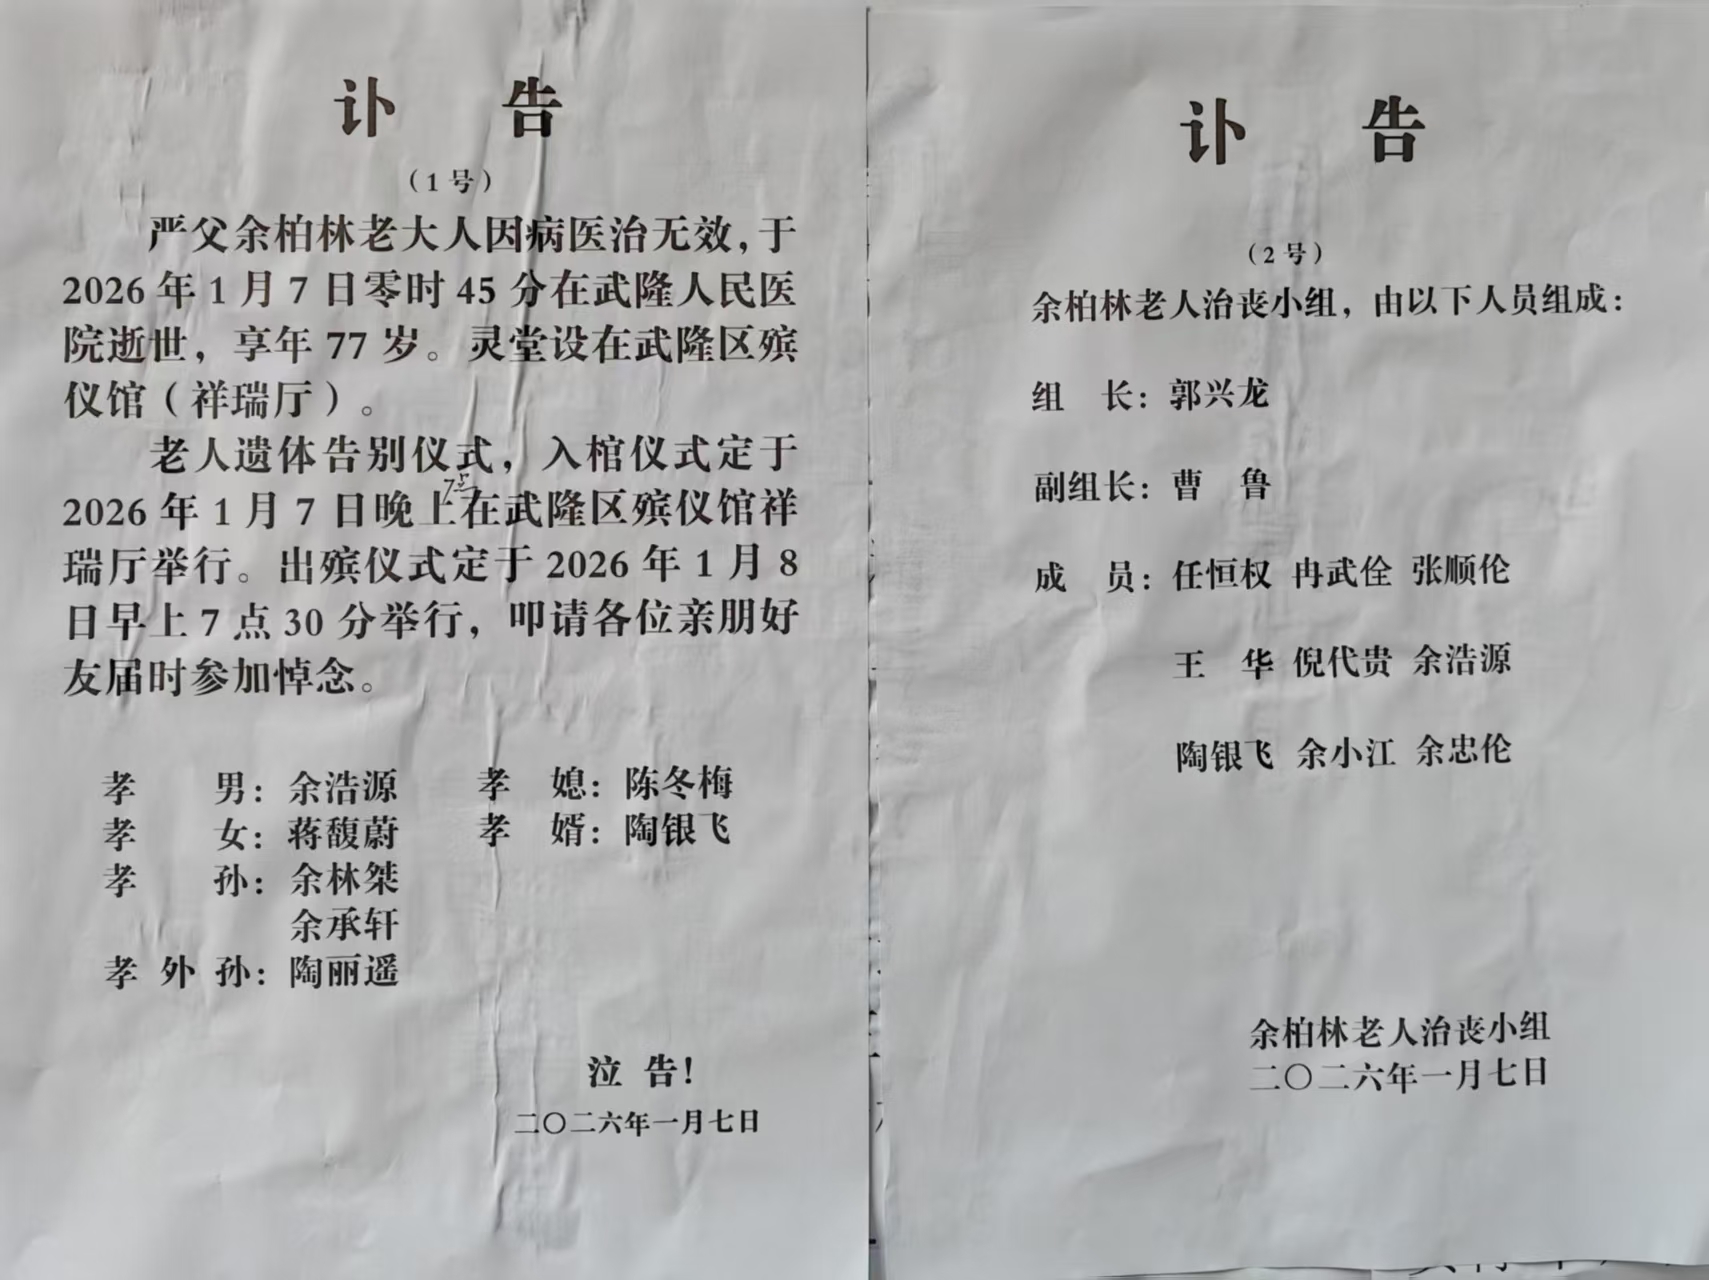 讣 告
（1 号）
严父余柏林老大人因病医治无效，于
2026 年 1 月 7 日零时 45 分在武隆人民医
院逝世，享年 77 岁。灵堂设在武隆区殡
仪馆（祥瑞厅）。
老人遗体告别仪式，入棺仪式定于
7点
2026 年 1 月 7 日晚上在武隆区殡仪馆祥
瑞厅举行。出殡仪式定于 2026 年 1 月 8
日早上 7 点 30 分举行，叩请各位亲朋好
友届时参加悼念。
孝 男：余浩源 孝 媳：陈冬梅
孝 女：蒋馥蔚 孝 婿：陶银飞
孝 孙：余林桀
余承轩
孝 外 孙：陶丽遥
泣 告！
二〇二六年一月七日
讣 告
（2 号）
余柏林老人治丧小组，由以下人员组成：
组 长：郭兴龙
副组长：曹 鲁
成 员：任恒权 冉武佺 张顺伦
王 华 倪代贵 余浩源
陶银飞 余小江 余忠伦
余柏林老人治丧小组
二〇二六年一月七日